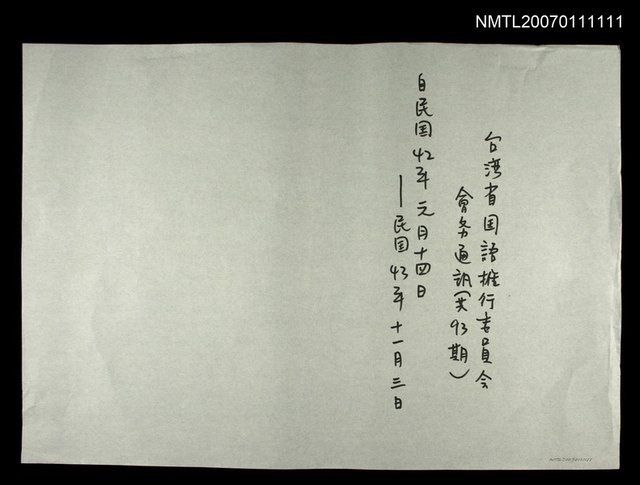 NMTL20070111111
台湾省国語推行委員会
會务通訊(共93期)
自民国42年元月十四日
—民国43年十一月三日